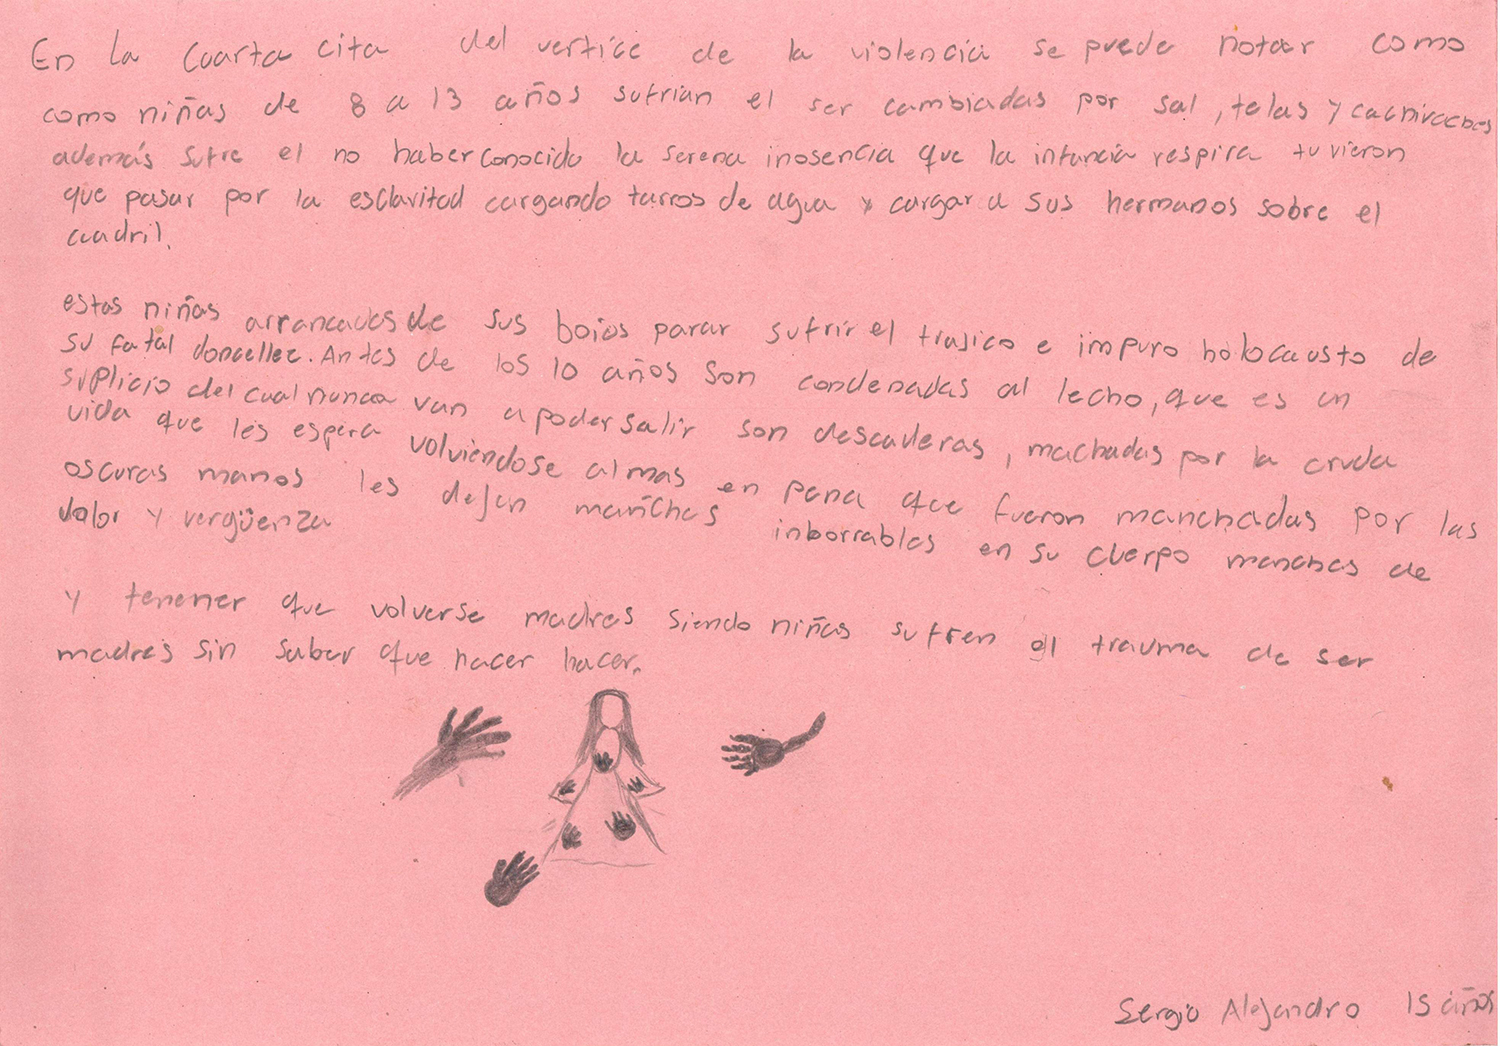 En la cuarta cita del vertice de la violencia se puede notar como
como niñas de 8 a 13 años sufrian el ser cambiadas por sal, telas y cachivaches
además sufre el no haber conocido la serena inosencia que la infancia respira tuvieron
que pasar por la esclavitad cargando tarros de agua y cargar a sus hermanos sobre el
cuadril.
estas niñas arrancadas de sus boios parar sufrir el trajico e impuro holocausto de
su fatal doncellez. Antes de los 10 años son condenadas al lecho, que es un
suplicio del cual nunca van a poder salir son descaderas, machadas por la cruda
vida que les espera volviendose almas en pena que fueron manchadas por las
oscuras manos les dejan manchas inborrables en su cuerpo manchas de
dolor y vergüenza
y tenener que volverse madres siendo niñas sufren el trauma de ser
madres sin saber que hacer hacer.
Sergio Alejandro 15 años